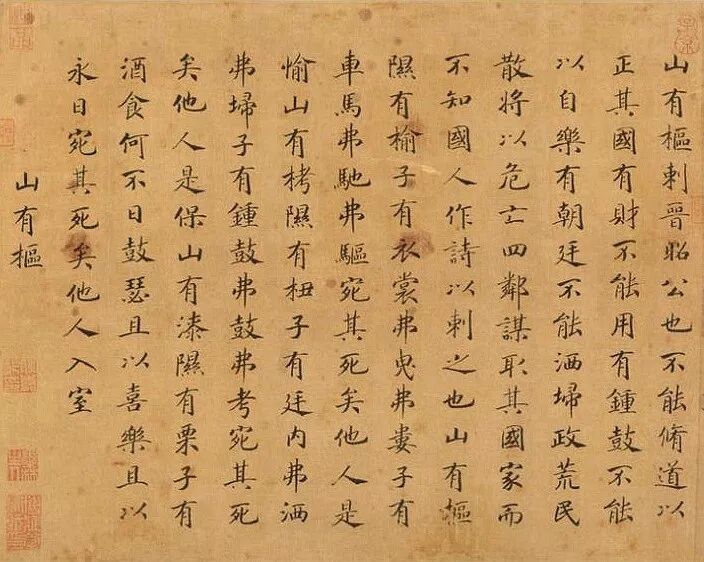 山有樞刺晉昭公也不能脩道以
正其國有財不能用有鍾鼓不能
以自樂有朝廷不能洒埽政荒民
散將以危亡四鄰謀取其國家而
不知國人作詩以刺之也山有樞
隰有榆子有衣裳弗曳弗婁子有
車馬弗馳弗驅宛其死矣他人是
愉山有栲隰有杻子有廷內弗洒
弗埽子有鍾鼓弗鼓弗考宛其死
矣他人是保山有漆隰有栗子有
酒食何不日鼓瑟且以喜樂且以
永日宛其死矣他人入室
山有樞